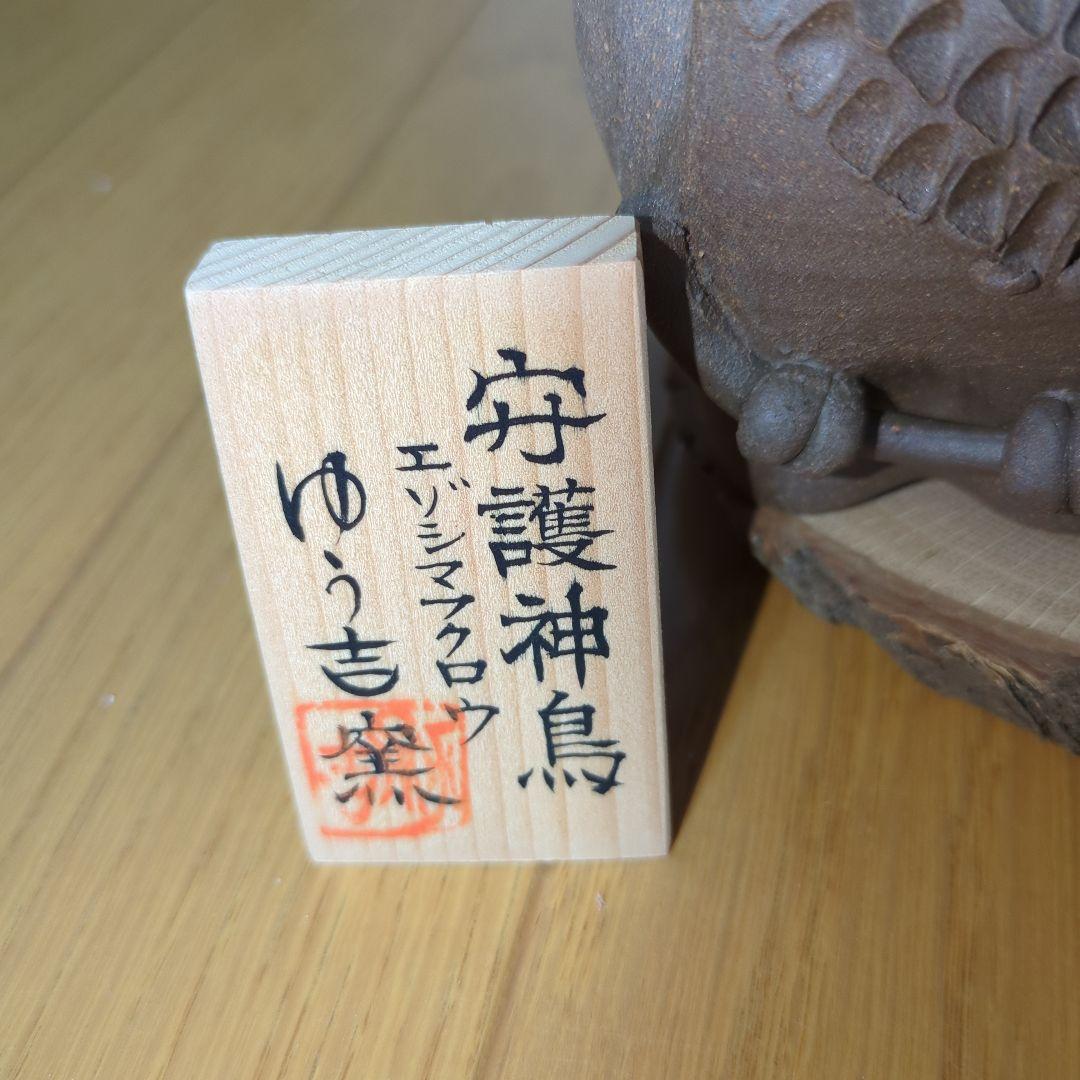 守護神鳥
エゾシマフクロウ
ゆう吉窯